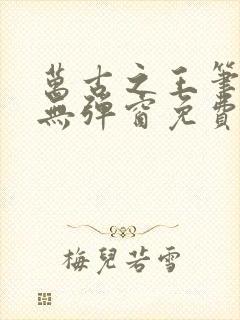 萬古之王筆
無彈窗免費
梅兒若雪